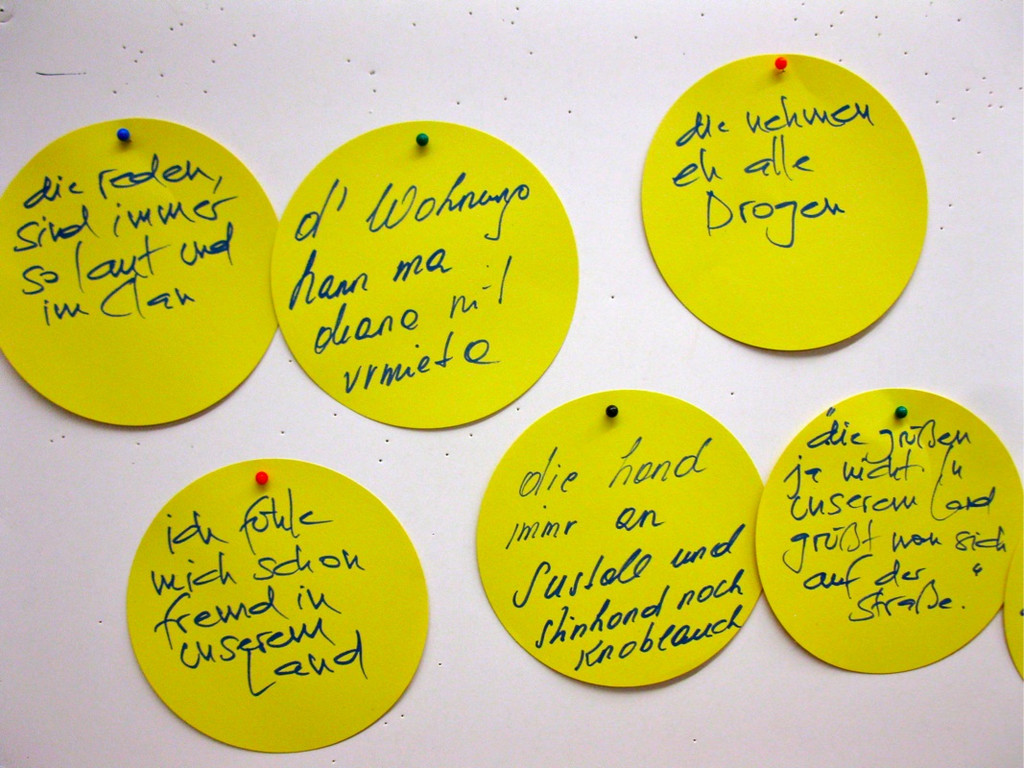 die reden,
sind immer
so laut und
im Clan
d' Wohnung
kann ma
deana nit
vrmieta
die nehmen
eh alle
Drogen
ich fühle
mich schon
fremd in
unserem
Land
die hond
immr an
Sustall und
stinkond noch
Knoblauch
"die grüßen
ja nicht. In
unserem Land
grüßt man sich
auf der
Straße."